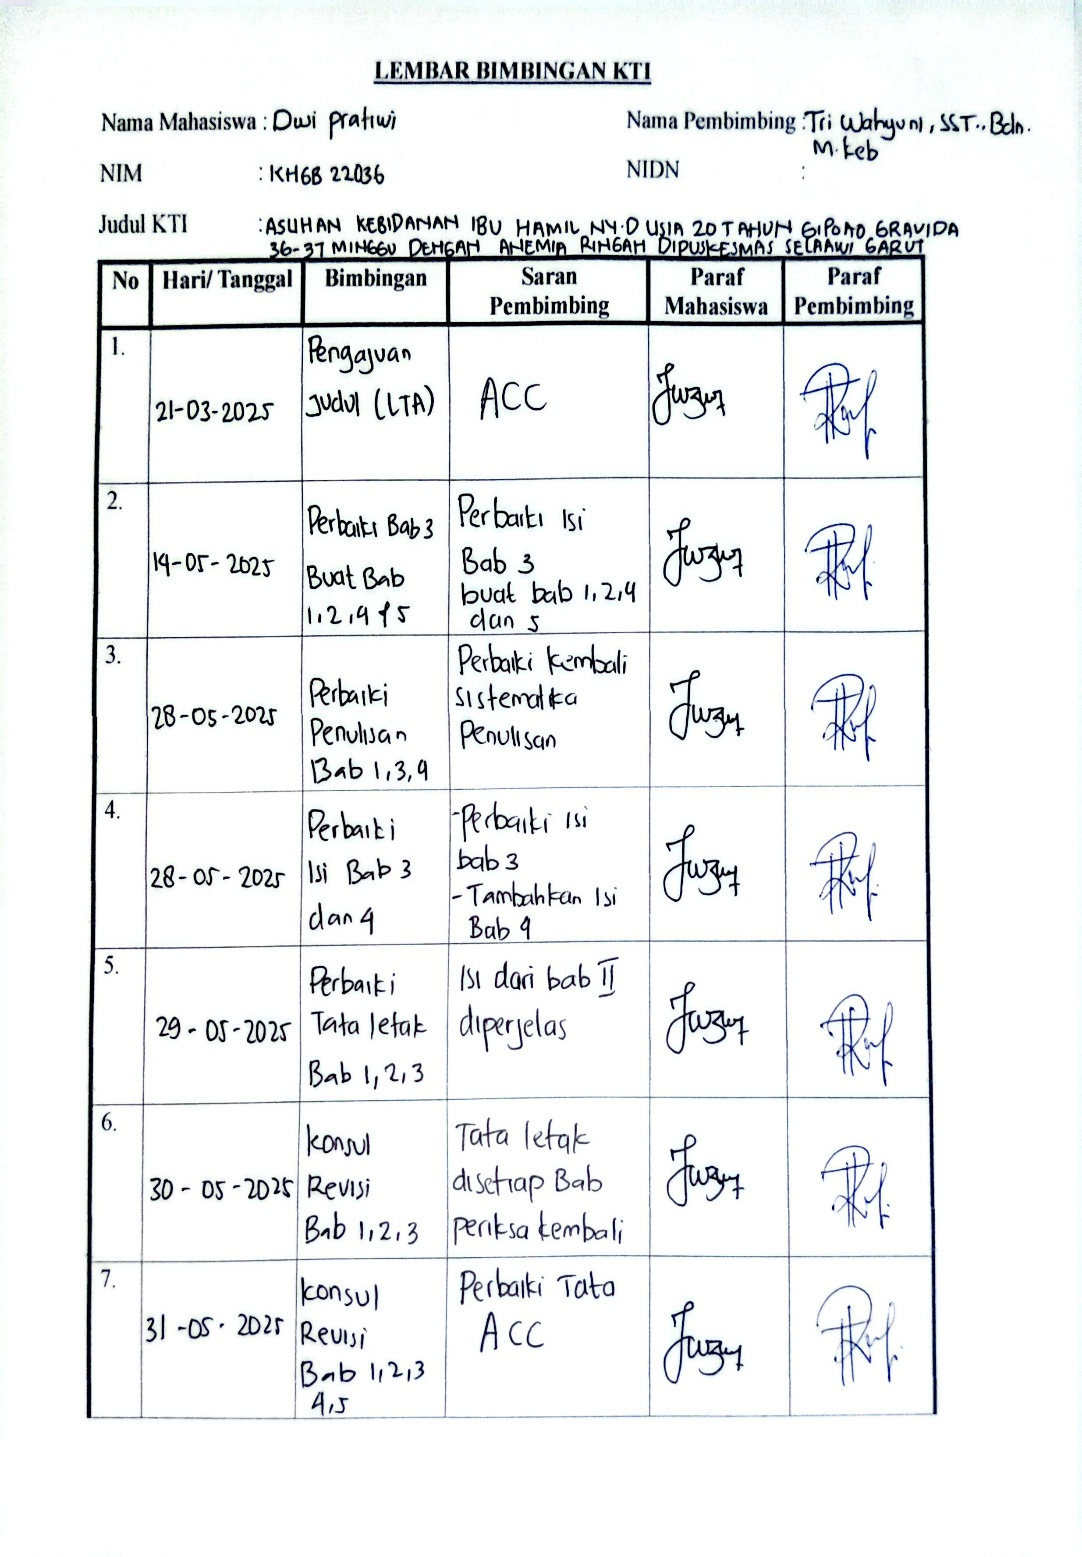 LEMBAR BIMBINGAN KTI
Nama Mahasiswa : Dwi Pratiwi
Nama Pembimbing : Tri Wahyuni, SST., Bdn.
M.keb
NIM : KHGB 22036
NIDN :
Judul KTI : ASUHAN KEBIDANAN IBU HAMIL NY.D USIA 20 TAHUN G1P0A0 GRAVIDA
36-37 MINGGU DENGAN ANEMIA RINGAN DIPUSKESMAS SELAAWI GARUT
No Hari/ Tanggal Bimbingan Saran Pembimbing Paraf Mahasiswa Paraf Pembimbing
1.
21-03-2025
Pengajuan
Judul (LTA)
ACC
2.
14-05-2025
Perbaiki Bab 3
Buat Bab
1,2,4 & 5
Perbaiki Isi
Bab 3
buat bab 1,2,4
dan 5
3.
28-05-2025
Perbaiki
Penulisan
Bab 1,3,4
Perbaiki kembali
sistematika
Penulisan
4.
28-05-2025
Perbaiki
Isi Bab 3
dan 4
-Perbaiki Isi
bab 3
-Tambahkan Isi
Bab 4
5.
29-05-2025
Perbaiki
Tata letak
Bab 1,2,3
Isi dari bab II
diperjelas
6.
30-05-2025
Konsul
Revisi
Bab 1,2,3
Tata letak
disetiap Bab
periksa kembali
7.
31-05-2025
Konsul
Revisi
Bab 1,2,3
4,5
Perbaiki Tata
ACC